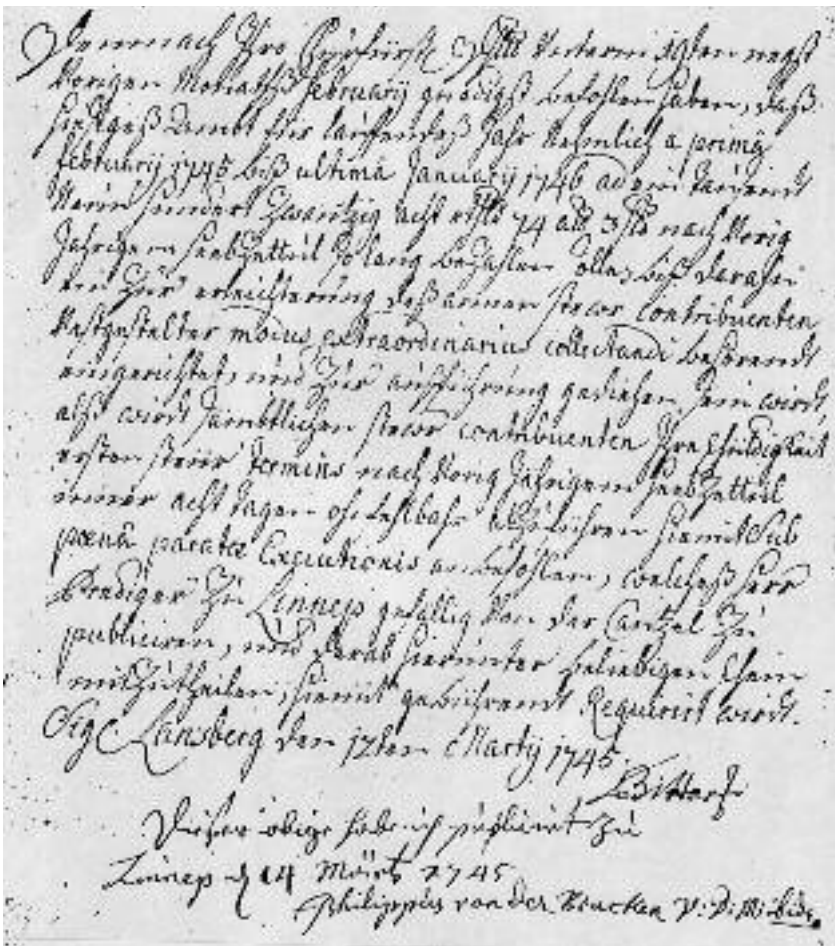 Demnach Ihro Churfürstl. Dhlt unterm 19ten negst
Vorigen Monathß February gnädigst befohlen haben, daß
hießigeß Ambt für lauffendeß Jahr Nehmlich a primâ
februarij 1745 biß ultimâ Januarij 1746 ad ein taußent
Neun hundert Zwantzig acht rthlr 74 alb 3 hlr nach Vorig
Jährigem heebzettul so lang bezahlen solle, biß daraselb
ein Zur erleichterung deß armen stewr Contribuenten
Vestgestalter modus extraordinarius collectandi behörendt
eingerichtet, und Zur außführung gediehen sein wirdt,
alß wirdt sämbtlichen stewr contribuenten Ihre schüldigkeit
ersten steür termins nach Vorig Jährigem heebzettul
inner acht tagen ohnfehlbahr abzuführen hiemit sub
poenâ paratae Executionis anbefohlen, welcheß Herr
Prediger Zu Linnep gefällig Von der Cantzel Zu
publiciren, und darab hierunter beliebigen schein
mitzutheilen, hiemit gebührendt Requirirt wirdt.
Sig. Lansberg den 12ten Martij 1745.
Dießer obige habe ich publicirt zu
Linnep d 14 Märtz 1745
Philippus von der Heucken V: D: M: ibid.